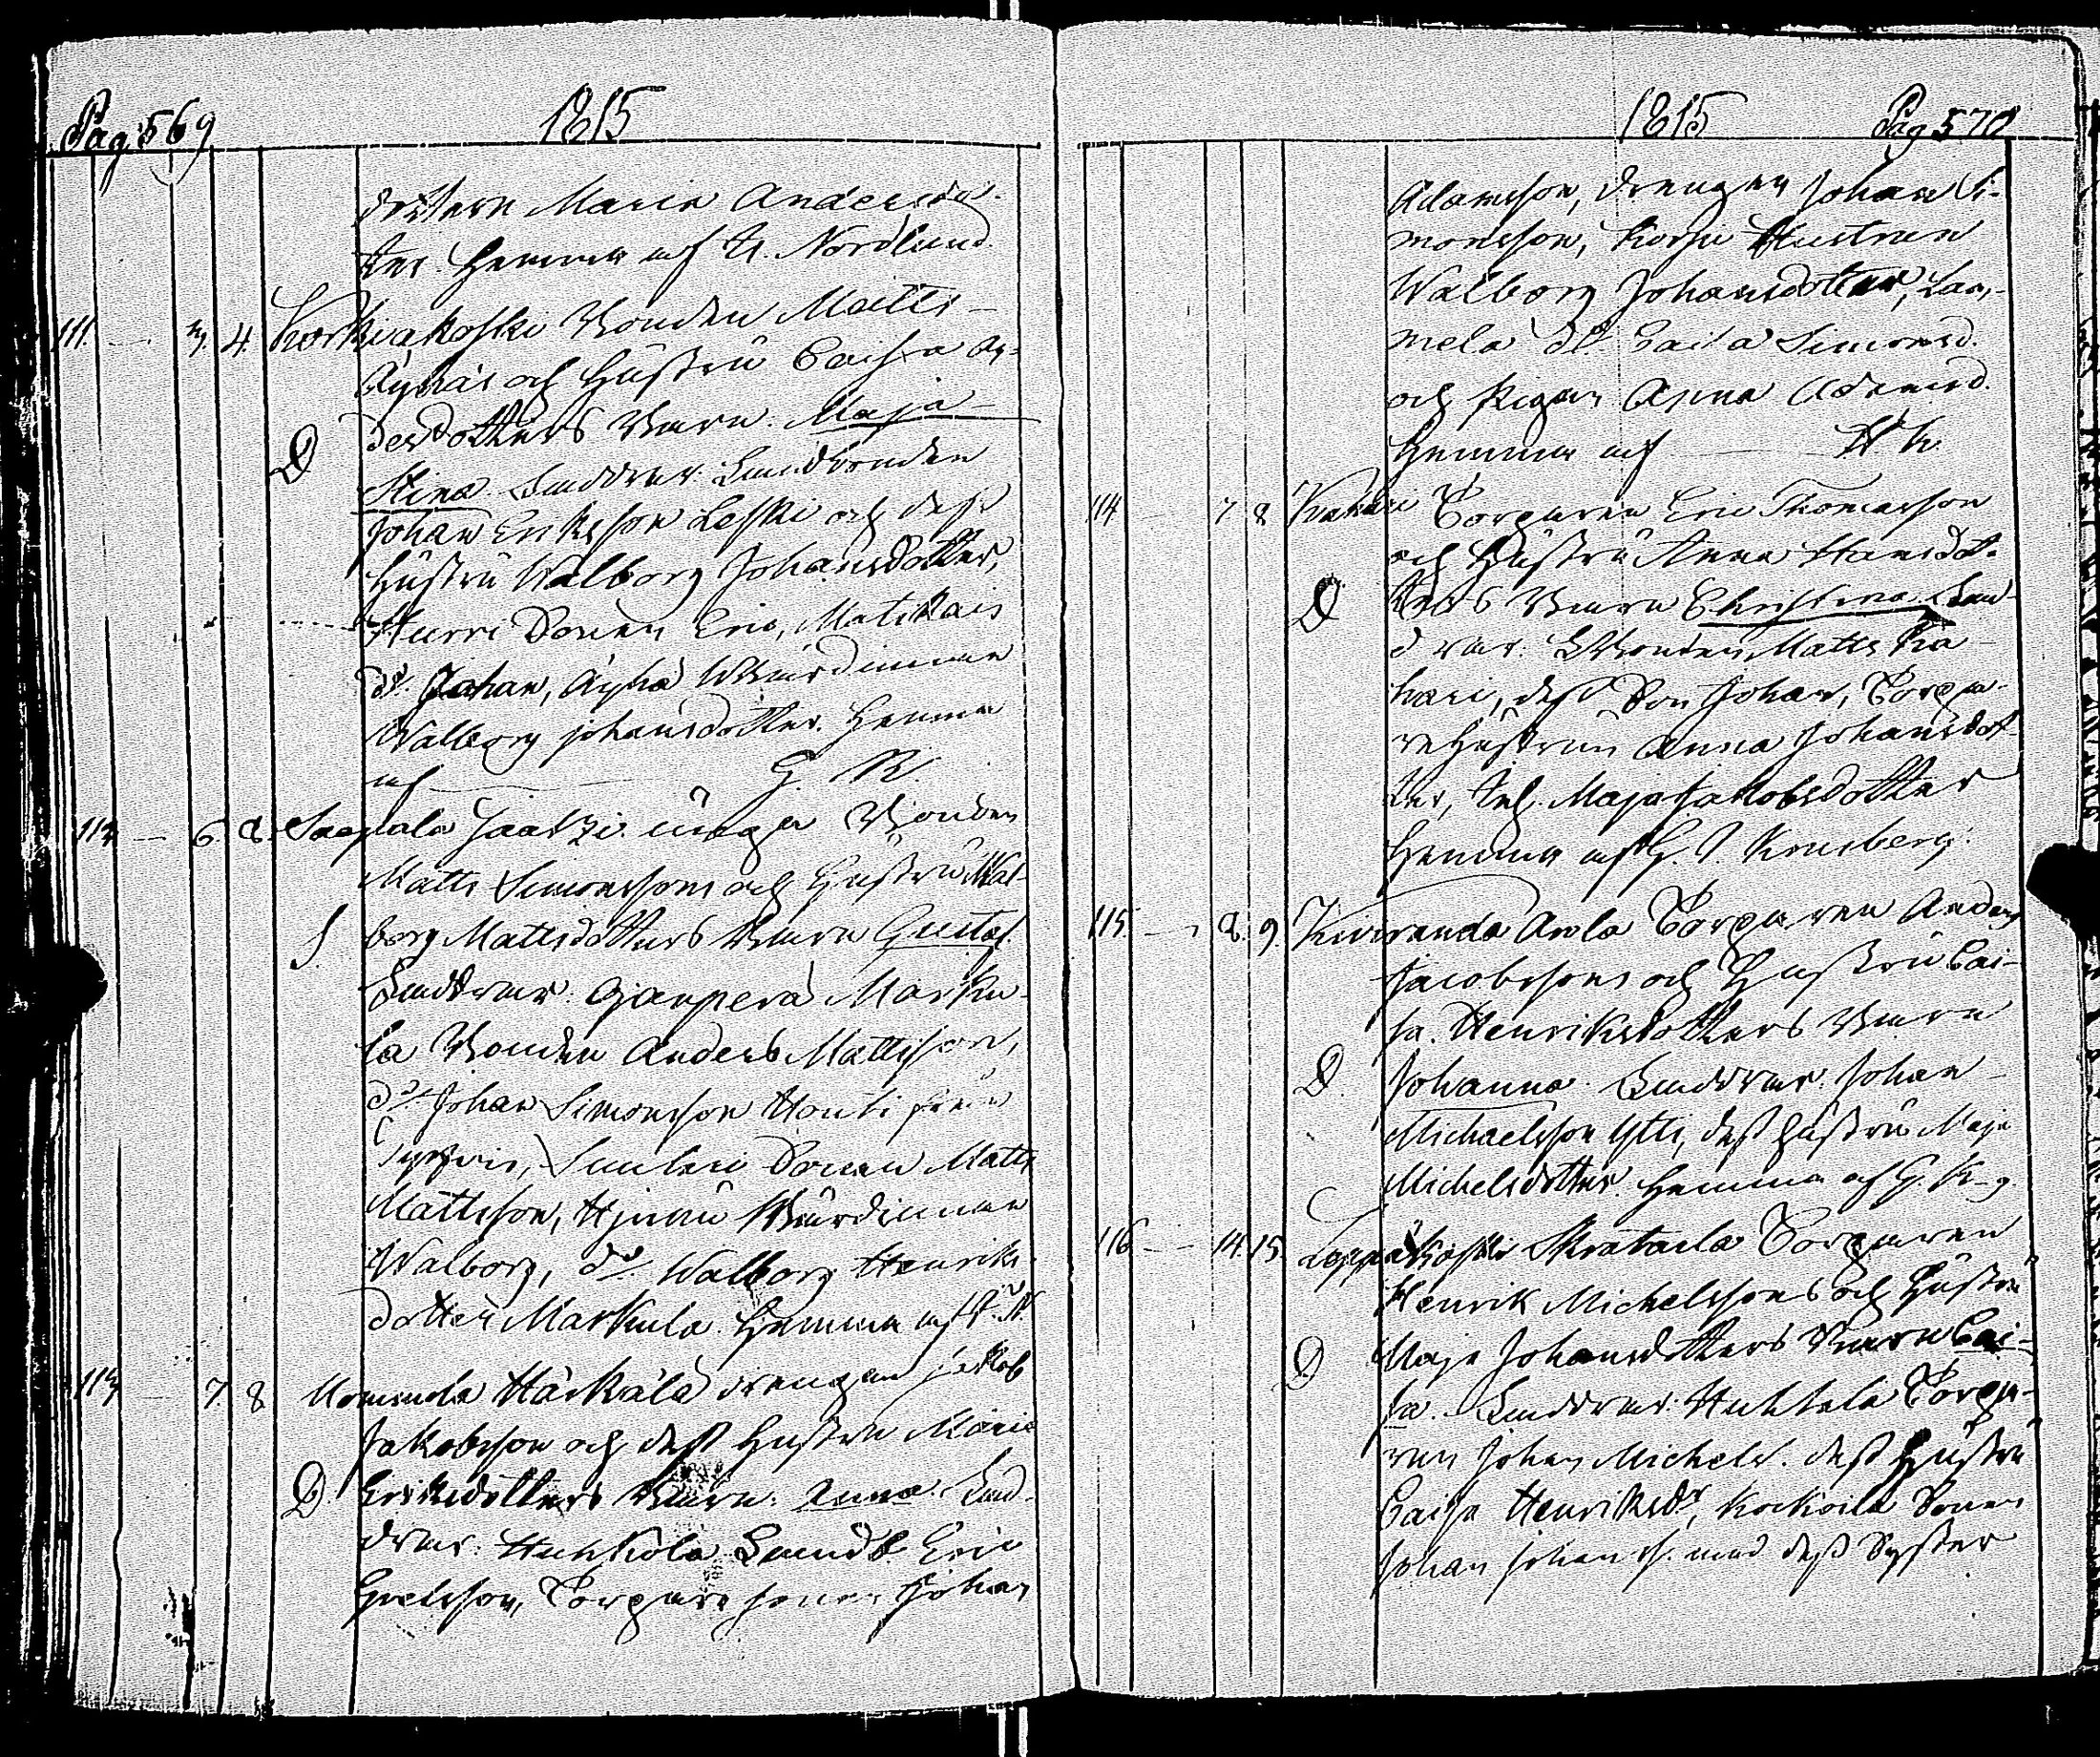 Pag 569
1815
dottern Maria Andersdot-
ter. Hemma af A. Nordlund.
111. — 3. 4. Korkiakoski Bonden Matts
Äyhäs och Hustru Caisa An-
D dersdotters Barn. Maja
Stina. Faddrar: Landbonden
Johan Eriksson Leski och dess
Hustru Walborg Johansdotter,
Hurri Sonen Eric, Matikais
do. Johan, Äyhä Wärdinnan
Walborg Johansdotter. Hemma
af G. R.
112 — 6. 8. Saapala Jaatzi unga Bonden
Matts Simonssons och Hustru Wal-
S. borg Mattsdotters Barn Gustaf.
Faddrar. Ojanperä Marku-
la Bonden Anders Mattsson,
do. Johan Simonsson
Sonen Matts
Mattsson, Wärdinnan
Walborg, do. Walborg Henriks-
dotter Markula. Hemma af
113 — 7. 8 Härkälä drengen Jakob
Jakobsson och dess Hustru Maria
D. Eriksdotters Barn. Anna. Fad-
drar: Huhkola Landb. Eric
Torpare sonen Johan
1815
Pag 570
Adamsson, drengen Johan Si-
monsson, Hustrun
Walborg Johansdotter, Lam-
mela do. Caisa Simonsd.
och Pigan Anna Adamsd.
Hemma af
114 — 7 8 Kahari Torparen Eric Thomasson
och Hustru Anna Hansdot-
D ters Barn Christina. Fad-
drar: Bonden Matts Ka-
hari, dess Son Johan, Torpa-
re Hustrun Anna Johansdot-
ter, Inh. Maja Jakobsdotter
Hemma af G. J. Kruseberg.
115. — 8. 9. Kiviranda Torparen Anders
Jacobssons och Hustru Cai-
sa Henriksdotters Barn
D. Johanna. Faddrar. Johan
Michaelsson Ylli, dess Hustru Maja
Michelsdotter. Hemma af G. K-g.
116 — 14. 15. Leppäkoski Torparen
Henrik Michelssons och Hustru
D Maja Johansdotters Barn Cai-
sa. Faddrar: Huhtala Torpa-
ren Johan Michels. dess Hustru
Caisa Henriksdr, Kockoila Sonen
Johan Johanss. med dess Syster